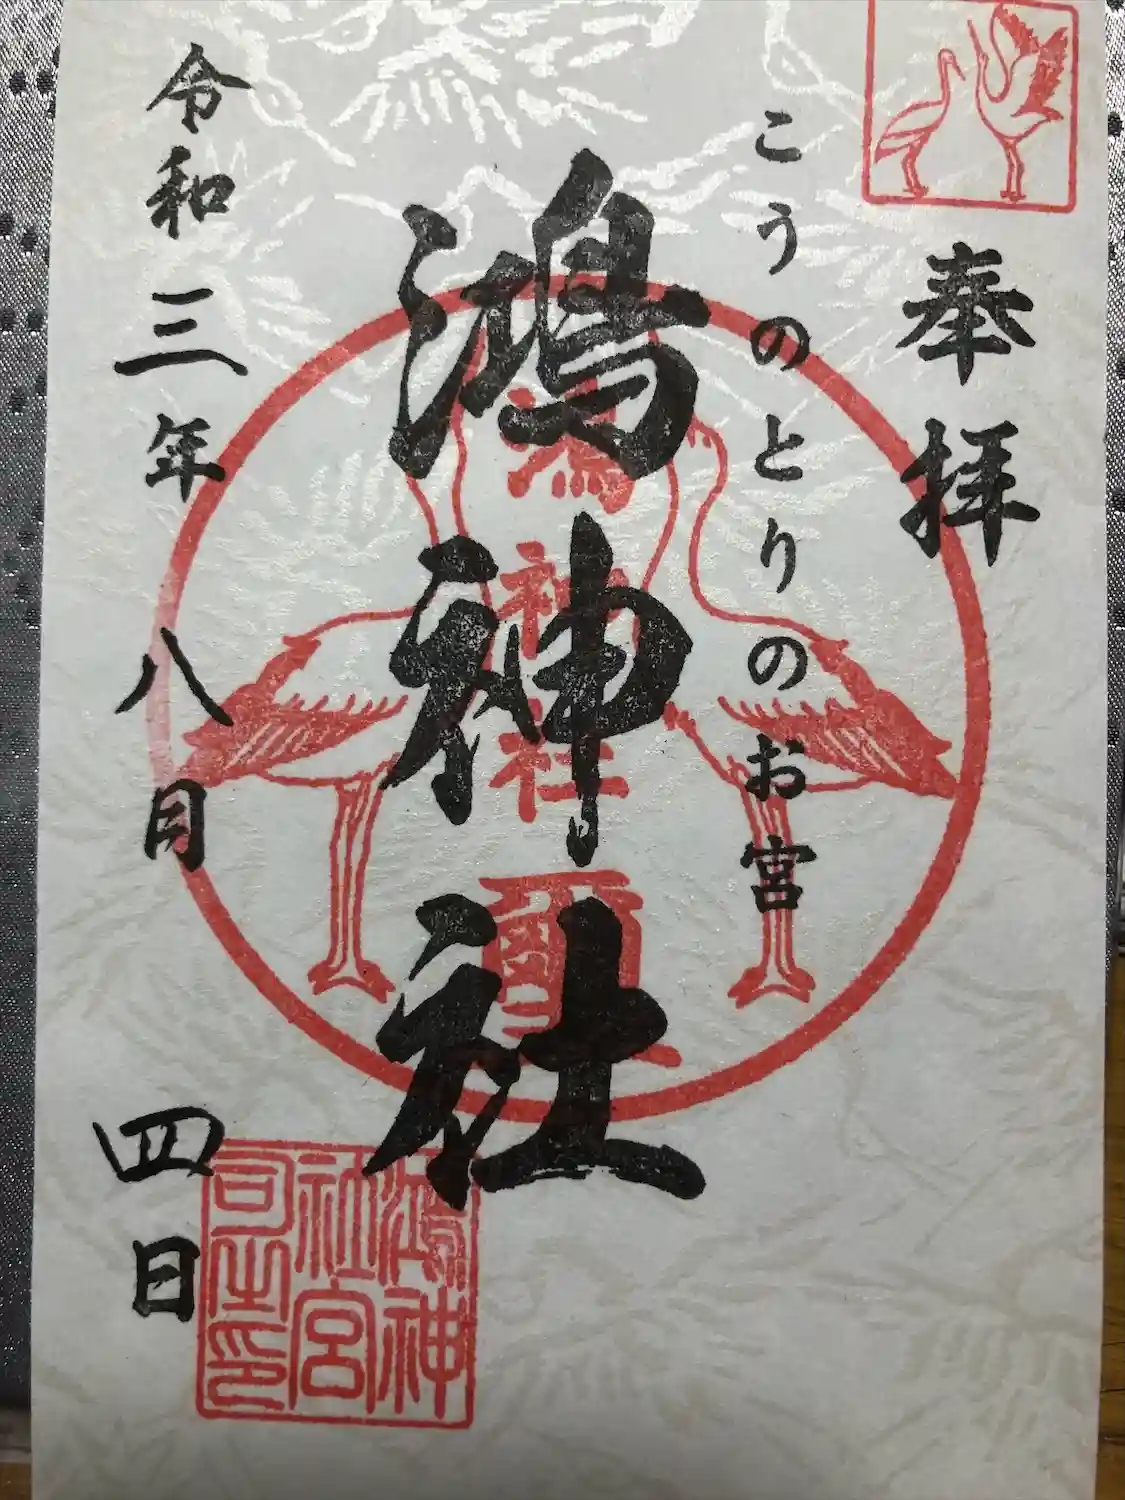 奉拝
こうのとりのお宮
鴻神社
令和三年八月四日
鴻神社璽
鴻神
社宮
司之印